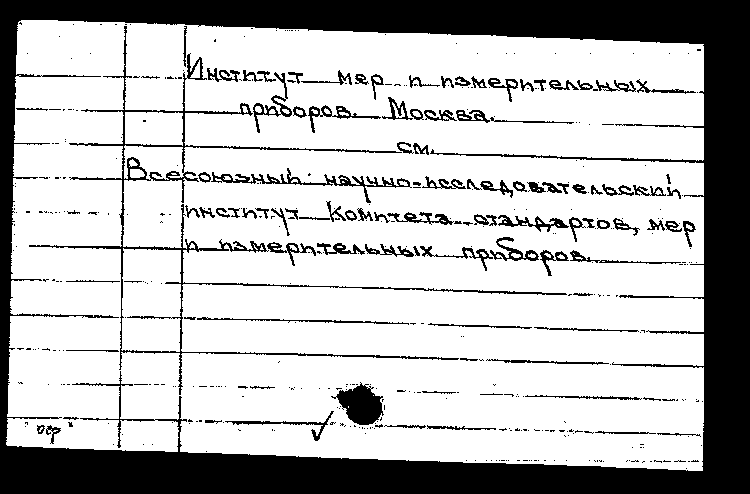 Институт мер и измерительных
приборов. Москва.
см.
Всесоюзный научно-исследовательский
институт Комитета стандартов, мер
и измерительных приборов.